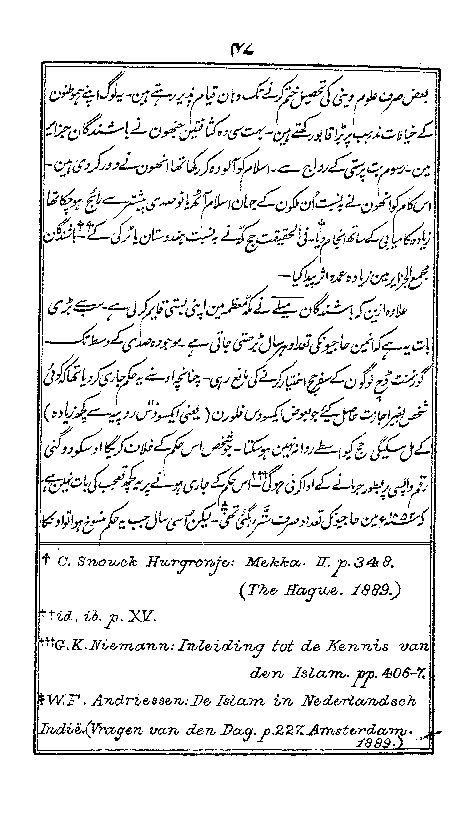 ۳۷۸
بعض صرف علوم دینی کی تحصیل ختم کرنے تک وہان قیام پذیر رہتے ہین۔ یہ لوگ اپنے ہموطنون
کے خیالات مذہب پر بڑا قابو رکھتے ہین۔ بہت سی وہ کثافتین جنھون نے باشندگان جزایر
مین۔ رسوم بت پرستی کے رواج سے۔ اسلام کو آلودہ کر رکھا تھا انھون نے دور کر دی ہین۔
اس کام کو انھون نے بہ نسبت اُن ملکون کے جہان اسلام آٹھ یا نو صدی پیشتر سے رائج ہو چکا تھا
زیادہ کامیابی کے ساتھ انجام دیا۔ فی الحقیقت حج نے بہ نسبت ہندوستان یا ٹرکی کے†† باشندگان
مجمع الجزایر مین زیادہ عمدہ اثر پیدا کیا۔
علاوہ ازین کہ باشندگان میلے نے مکہ معظمہ مین اپنی بستی قایم کر لی ہے۔ سب سے بڑی
بات یہ ہے کہ انمین حاجیونکی تعداد ہر سال بڑھتی جاتی ہے۔ موجودہ صدی کے وسط تک۔
گورنمنٹ ڈچ لوگون کے سفر حج اختیار کرنے کی مانع رہی۔ چنانچہ اوسنے یہ حکم جاری کر دیا تھا کہ کوئی
شخص بغیر اجازت حاصل کیے جو بعوض ایکسو دس فلورن (یعنی ایکسو دس روپیہ سے کچھ زیادہ)
کے مل سکیگی حج کیواسطے روانہ نہین ہو سکتا۔ جو شخص اس حکم کے خلاف کریگا اوسکو دوگنی
رقم واپسی پر بطور جرمانے کے ادا کرنی ہوگی††† اس حکم کے جاری ہونے پر یہ کچھ تعجب کی بات نہین ہے
کہ مین حاجیونکی تعداد صرف ستّر رہگئی تھی۔ لیکن اُسی سال جب یہ حکم منسوخ ہوا تو اوسکا
† C. Snouck Hurgronje: Mekka. II. p. 348.
(The Hague. 1889.)
††id, ib. p. XV.
†††G. K. Niemann: Inleiding tot de Kennis van
den Islam. pp. 406-7.
*W. F. Andriessen: De Islam in Nederlandsch
Indië. (Vragen van den Dag. p. 227. Amsterdam.
1889.)